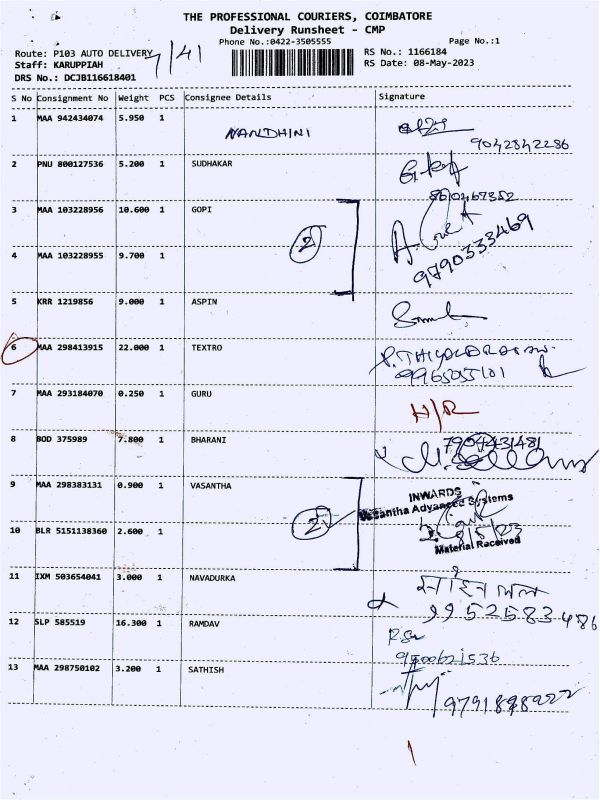 THE PROFESSIONAL COURIERS, COIMBATORE
Delivery Runsheet - CMP
Phone No.:0422-3505555 Page No.:1
Route: P103 AUTO DELIVERY 7/41 RS No.: 1166184
Staff: KARUPPIAH RS Date: 08-May-2023
DRS No.: DCJB116618401
S No Consignment No Weight PCS Consignee Details Signature
1 MAA 942434074 5.950 1 NANDHINI
9042842286
2 PNU 800127536 5.200 1 SUDHAKAR
8610467352
3 MAA 103228956 10.600 1 GOPI
2
4 MAA 103228955 9.700 1 9790333469
5 KRR 1219856 9.000 1 ASPIN
6 MAA 298413915 22.000 1 TEXTRO
9965055101
7 MAA 293184070 0.250 1 GURU H/R
8 BOD 375989 7.800 1 BHARANI 7904431481
9 MAA 298383131 0.900 1 VASANTHA INWARDS
Vasantha Advanced Systems
2
10 BLR 5151138360 2.600 1 8/5/23
Material Received
11 IXM 503654041 3.000 1 NAVADURKA
9952583486
12 SLP 585519 16.300 1 RAMDAV
13 MAA 298750102 3.200 1 SATHISH